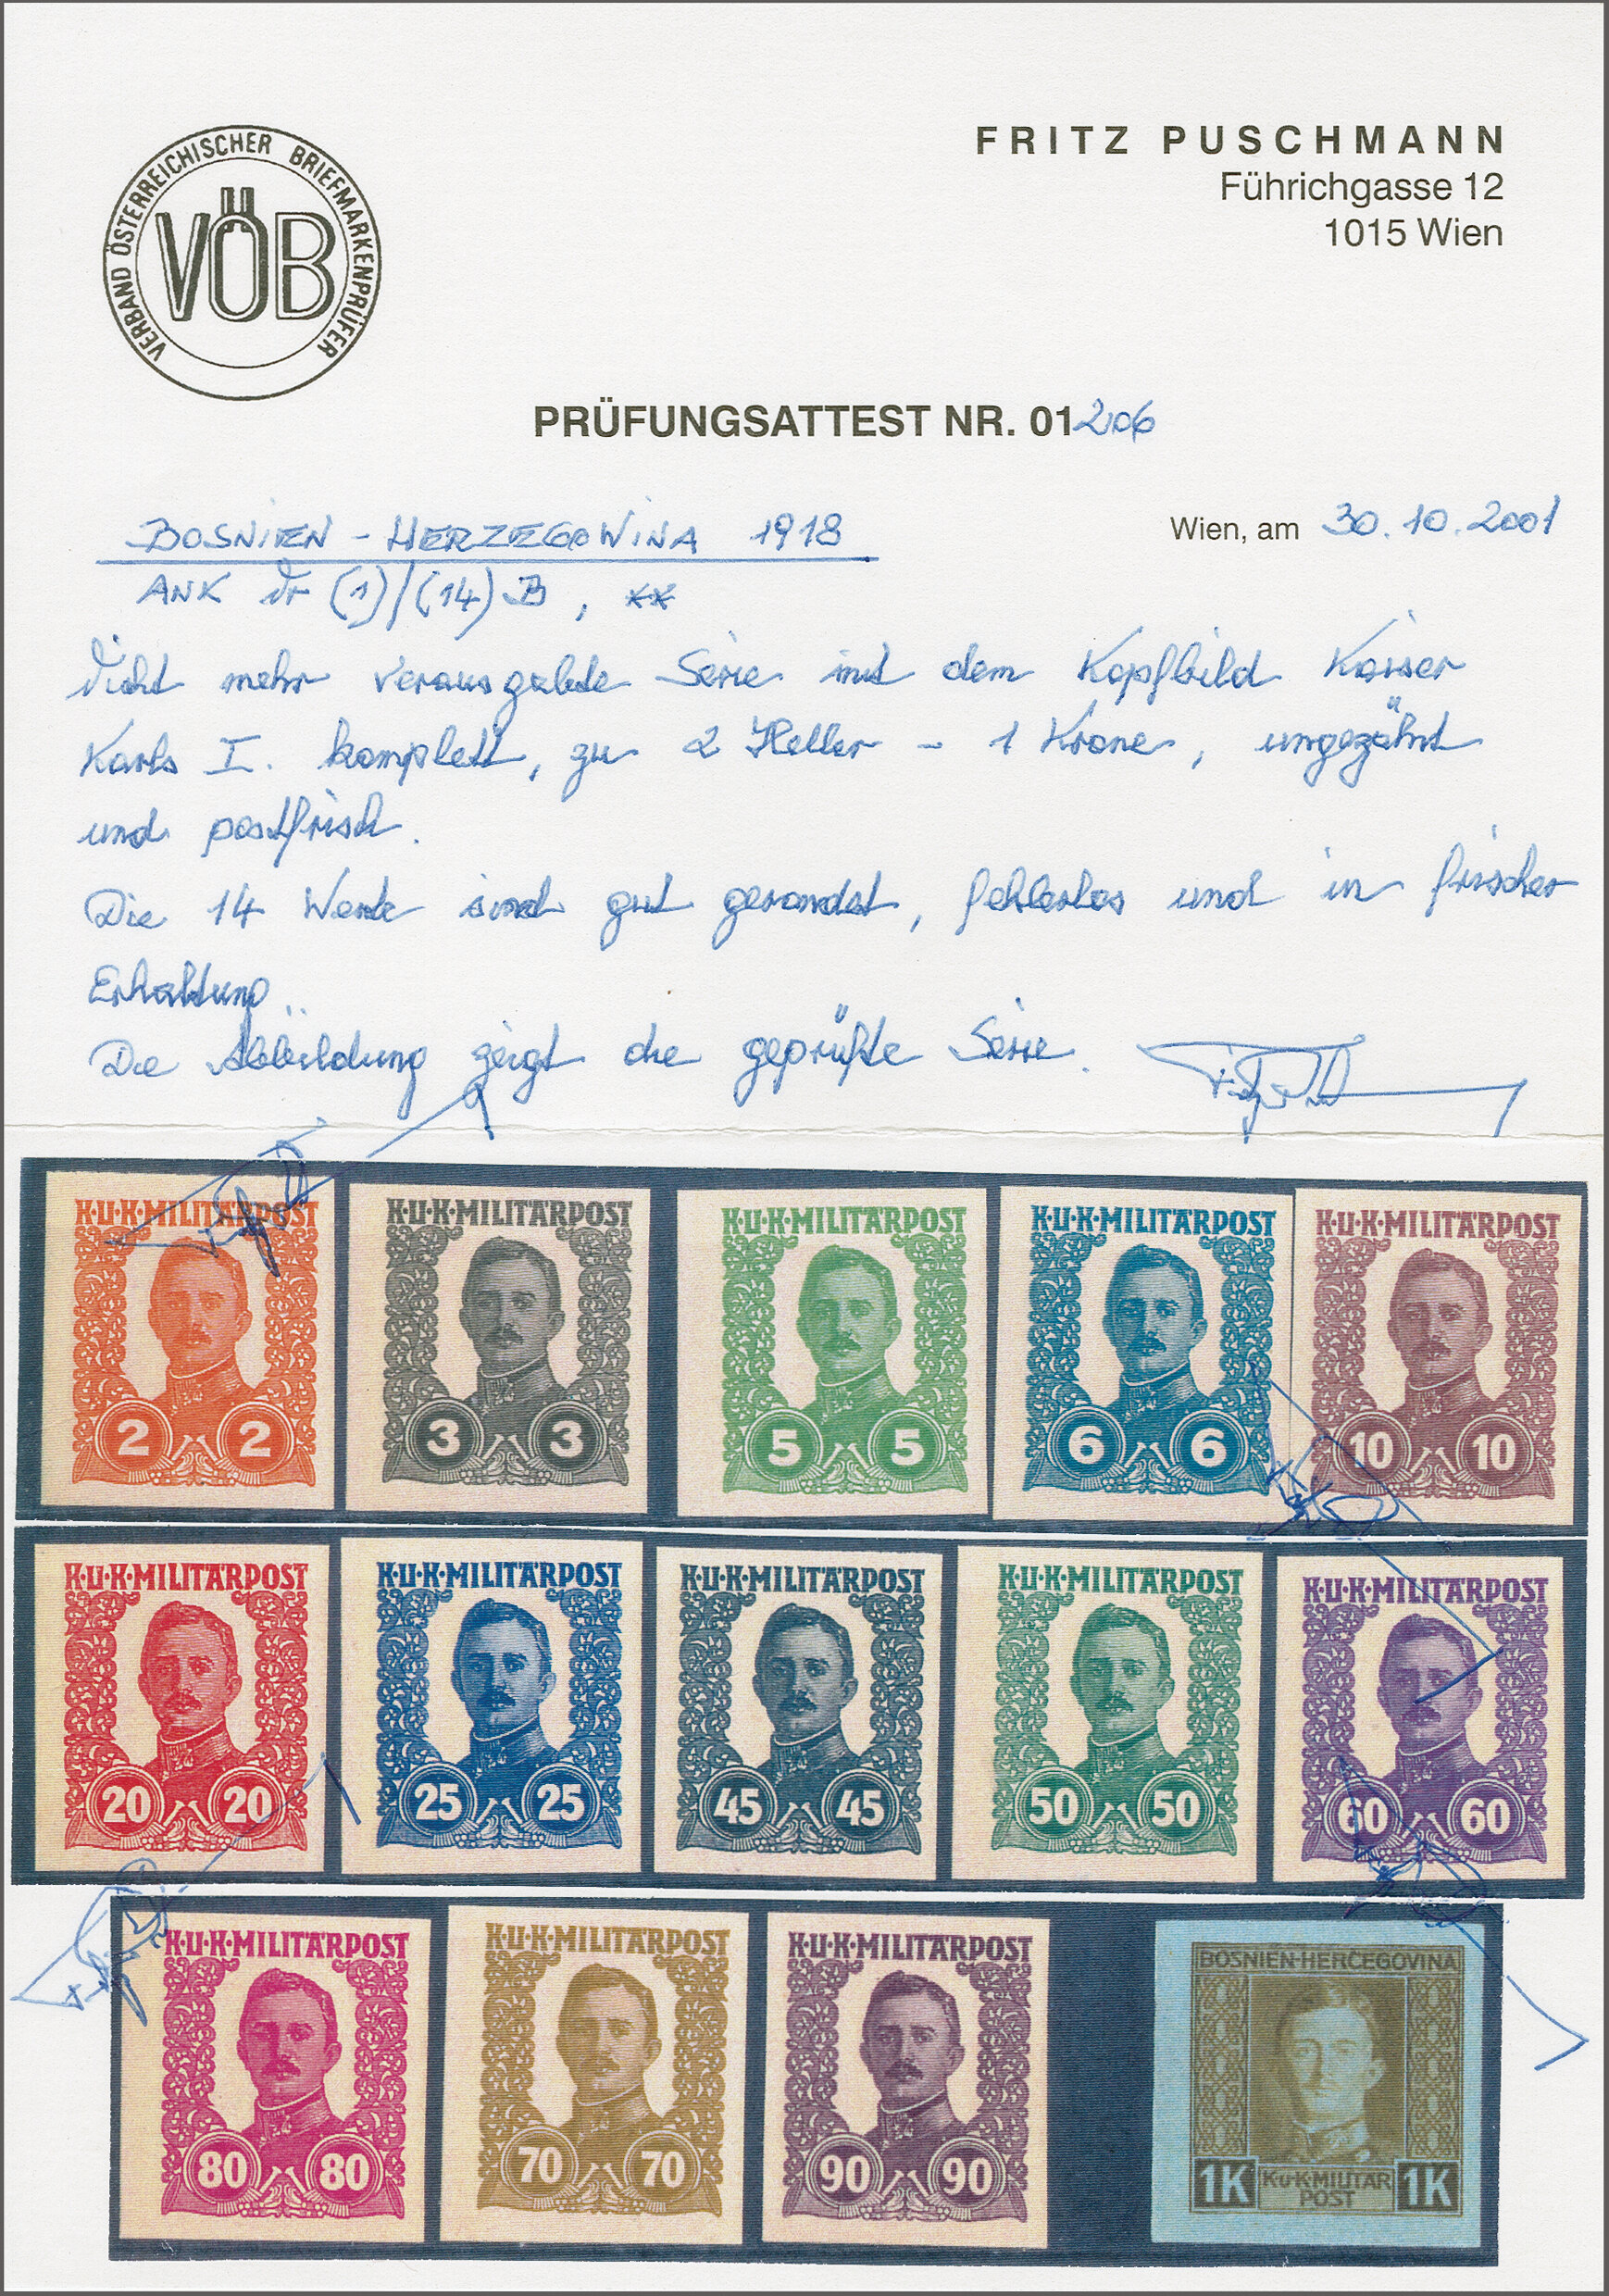 VERBAND ÖSTERREICHISCHER BRIEFMARKENPRÜFER
VÖB
FRITZ PUSCHMANN
Führichgasse 12
1015 Wien
PRÜFUNGSATTEST NR. 01206
BOSNIEN - HERZEGOWINA 1918
Wien, am 30.10.2001
ANK Nr (1)/(14) B, **
Nicht mehr verausgabte Serie mit dem Kopfbild Kaiser
Karls I. komplett, zu 2 Heller - 1 Krone, ungezähnt
und postfrisch.
Die 14 Werte sind gut gerandet, fehlerlos und in frischer
Erhaltung.
Die Abbildung zeigt die geprüfte Serie.
K·U·K·MILITÄRPOST K·U·K·MILITÄRPOST K·U·K·MILITÄRPOST K·U·K·MILITÄRPOST K·U·K·MILITÄRPOST
2 2 3 3 5 5 6 6 10 10
K·U·K·MILITÄRPOST K·U·K·MILITÄRPOST K·U·K·MILITÄRPOST K·U·K·MILITÄRPOST K·U·K·MILITÄRPOST
20 20 25 25 45 45 50 50 60 60
K·U·K·MILITÄRPOST K·U·K·MILITÄRPOST K·U·K·MILITÄRPOST
BOSNIEN-HERCEGOVINA
80 80 70 70 90 90
1K K.u.K.MILITÄR 1K
POST